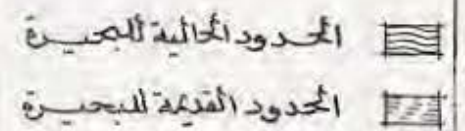 الحدود الحالية للبحيرة
الحدود القديمة للبحيرة